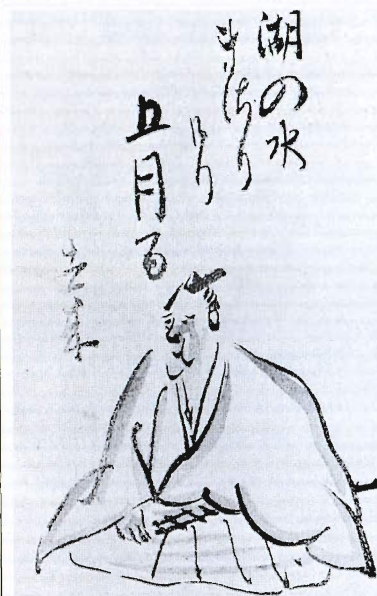 湖の水
まさり
けり
五月雨
去来